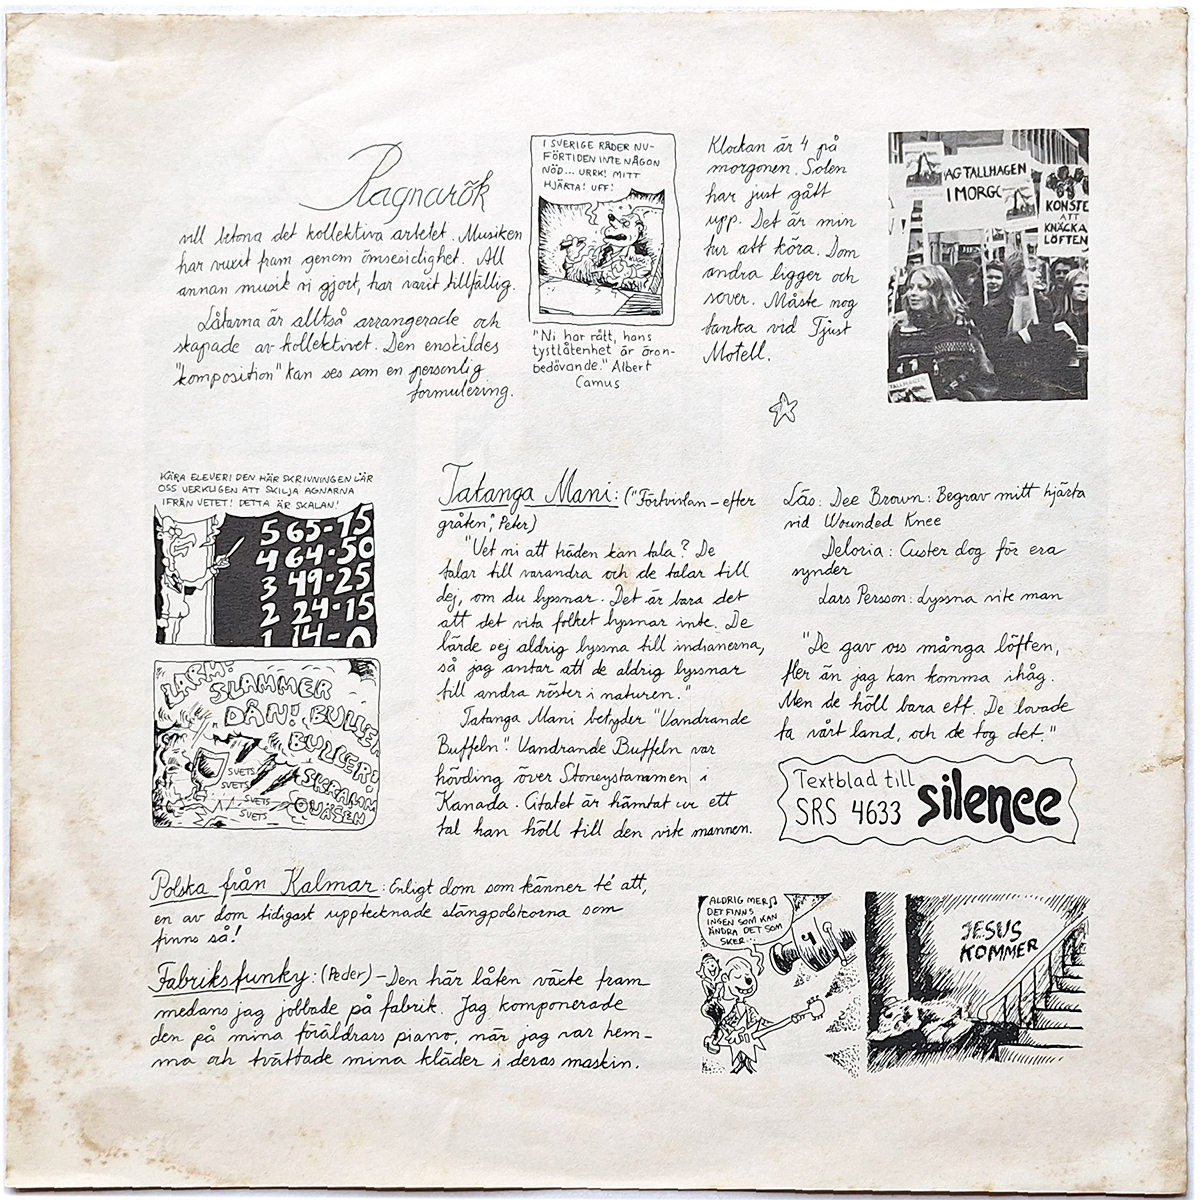 Ragnarök
vill betona det kollektiva arbetet. Musiken
har vuxit fram genom ömsesidighet. All
annan musik vi gjort, har varit tillfällig.
Låtarna är alltså arrangerade och
skapade av kollektivet. Den enskildes
"komposition" kan ses som en personlig
formulering.
I SVERIGE RÅDER NU-
FÖRTIDEN INTE NÅGON
NÖD... URRK! MITT
HJÄRTA! UFF!
"Ni har rätt, hans
tystlåtenhet är öron-
bedövande." Albert
Camus
Klockan är 4 på
morgonen. Solen
har just gått
upp. Det är min
tur att köra. Dom
andra ligger och
sover. Måste nog
tanka vid Tjust
Motell.
AG TALLHAGEN
I MORGO
KONSTE
ATT
KNÄCKA
LÖFTEN
TALLHAGEN
KÄRA ELEVER! DEN HÄR SKRIVNINGEN LÄR
OSS VERKLIGEN ATT SKILJA AGNARNA
IFRÅN VETET! DETTA ÄR SKALAN!
5 65-75
4 64-50
3 49-25
2 24-15
1 14-0
LARM!
SLAMMER
DÅN! BULLER
BULLER!
SKRAMM
OVÄSEN
SVETS
SVETS
SVETS
SVETS
Tatanga Mani: ("Förtvivlan - efter
gråten", Peter)
"Vet ni att träden kan tala? De
talar till varandra och de talar till
dej, om du lyssnar. Det är bara det
att det vita folket lyssnar inte. De
lärde sej aldrig lyssna till indianerna,
så jag antar att de aldrig lyssnar
till andra röster i naturen."
Tatanga Mani betyder "Vandrande
Buffeln". Vandrande Buffeln var
hövding över Stoneystammen i
Kanada. Citatet är hämtat ur ett
tal han höll till den vite mannen.
Läs: Dee Brown: Begrav mitt hjärta
vid Wounded Knee
Deloria: Custer dog för era
synder
Lars Persson: Lyssna vite man
"De gav oss många löften,
fler än jag kan komma ihåg.
Men de höll bara ett. De lovade
ta vårt land, och de tog det."
Textblad till
SRS 4633 silence
Polska från Kalmar: Enligt dom som känner té att,
en av dom tidigast upptecknade slängpolskorna som
finns så!
Fabriksfunky: (Peder) - Den här låten växte fram
medans jag jobbade på fabrik. Jag komponerade
den på mina föräldrars piano, när jag var hem-
ma och tvättade mina kläder i deras maskin.
ALDRIG MER♫
DET FINNS
INGEN SOM KAN
ÄNDRA DET SOM
SKER...
JESUS
KOMMER